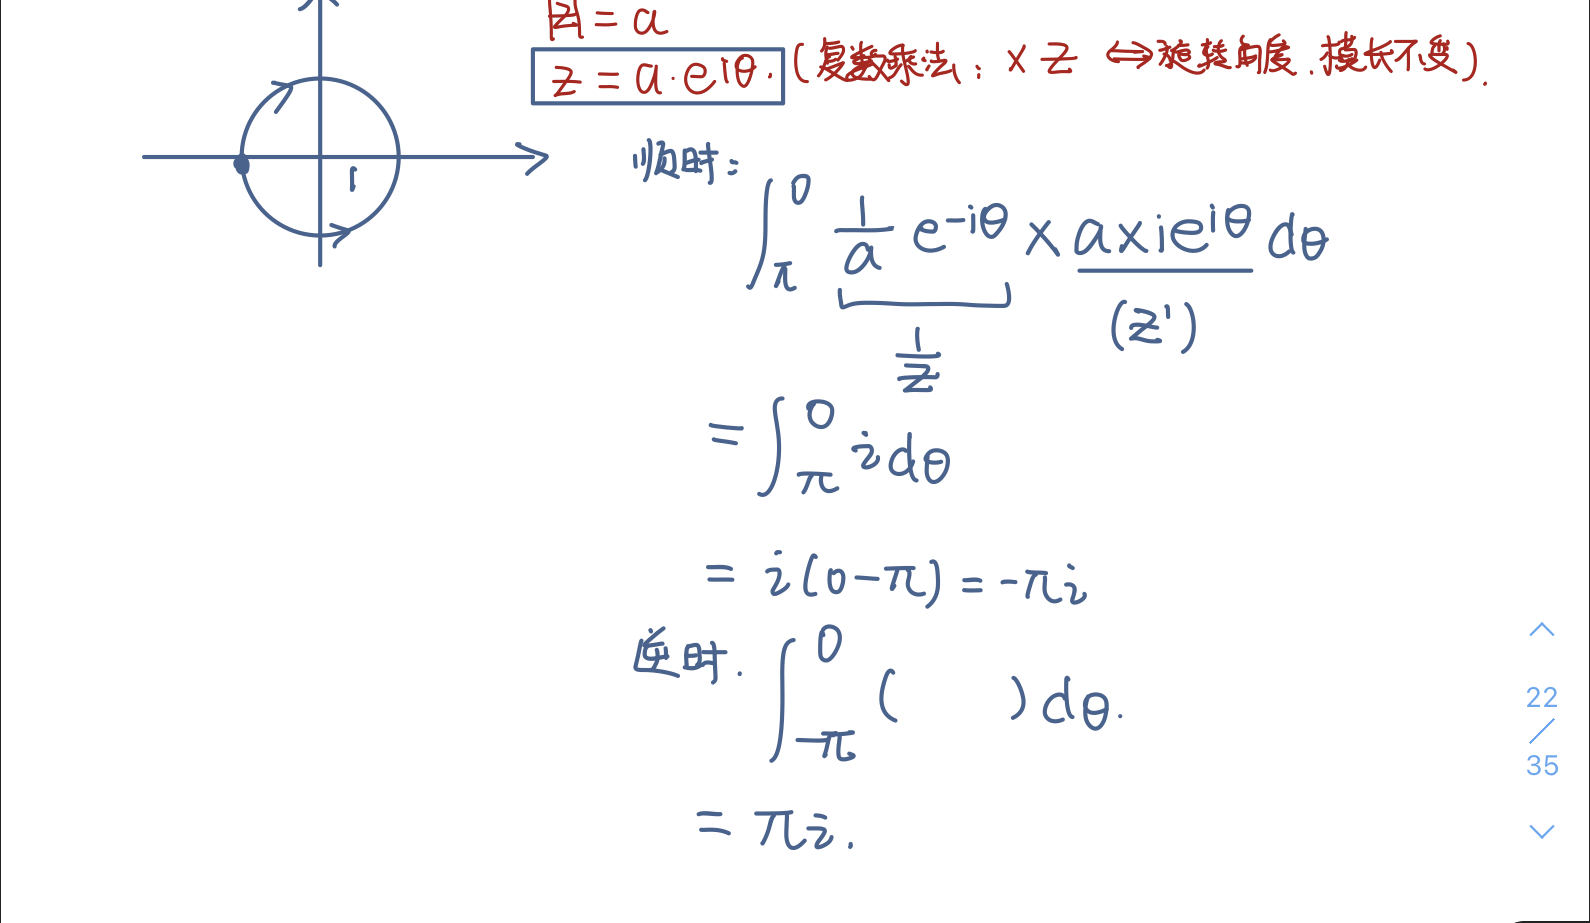 |z| = a
z = a·e^{iθ}. (复数乘法: × z ⇔ 旋转角度, 模长不变).
1
顺时:
∫_π^0 1/a e^{-iθ} × a×ie^{iθ} dθ
1/z
(z')
= ∫_π^0 i dθ
= i(0-π) = -πi
逆时. ∫_{-π}^0 ( ) dθ.
= πi.
22
/
35